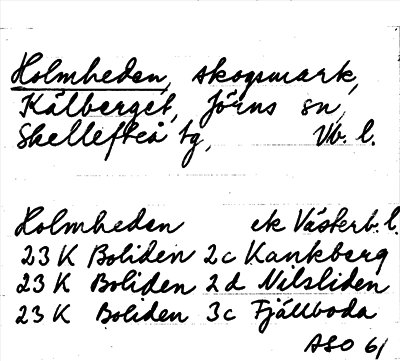 Holmheden, skogsmark,
Kålberget, Jörns sn,
Skellefteå tg, Vb. l.
Holmheden ek Västerb. l.
23 K Boliden 2c Kankberg
23 K Boliden 2d Nilsliden
23 K Boliden 3c Fjällboda
ASO 61